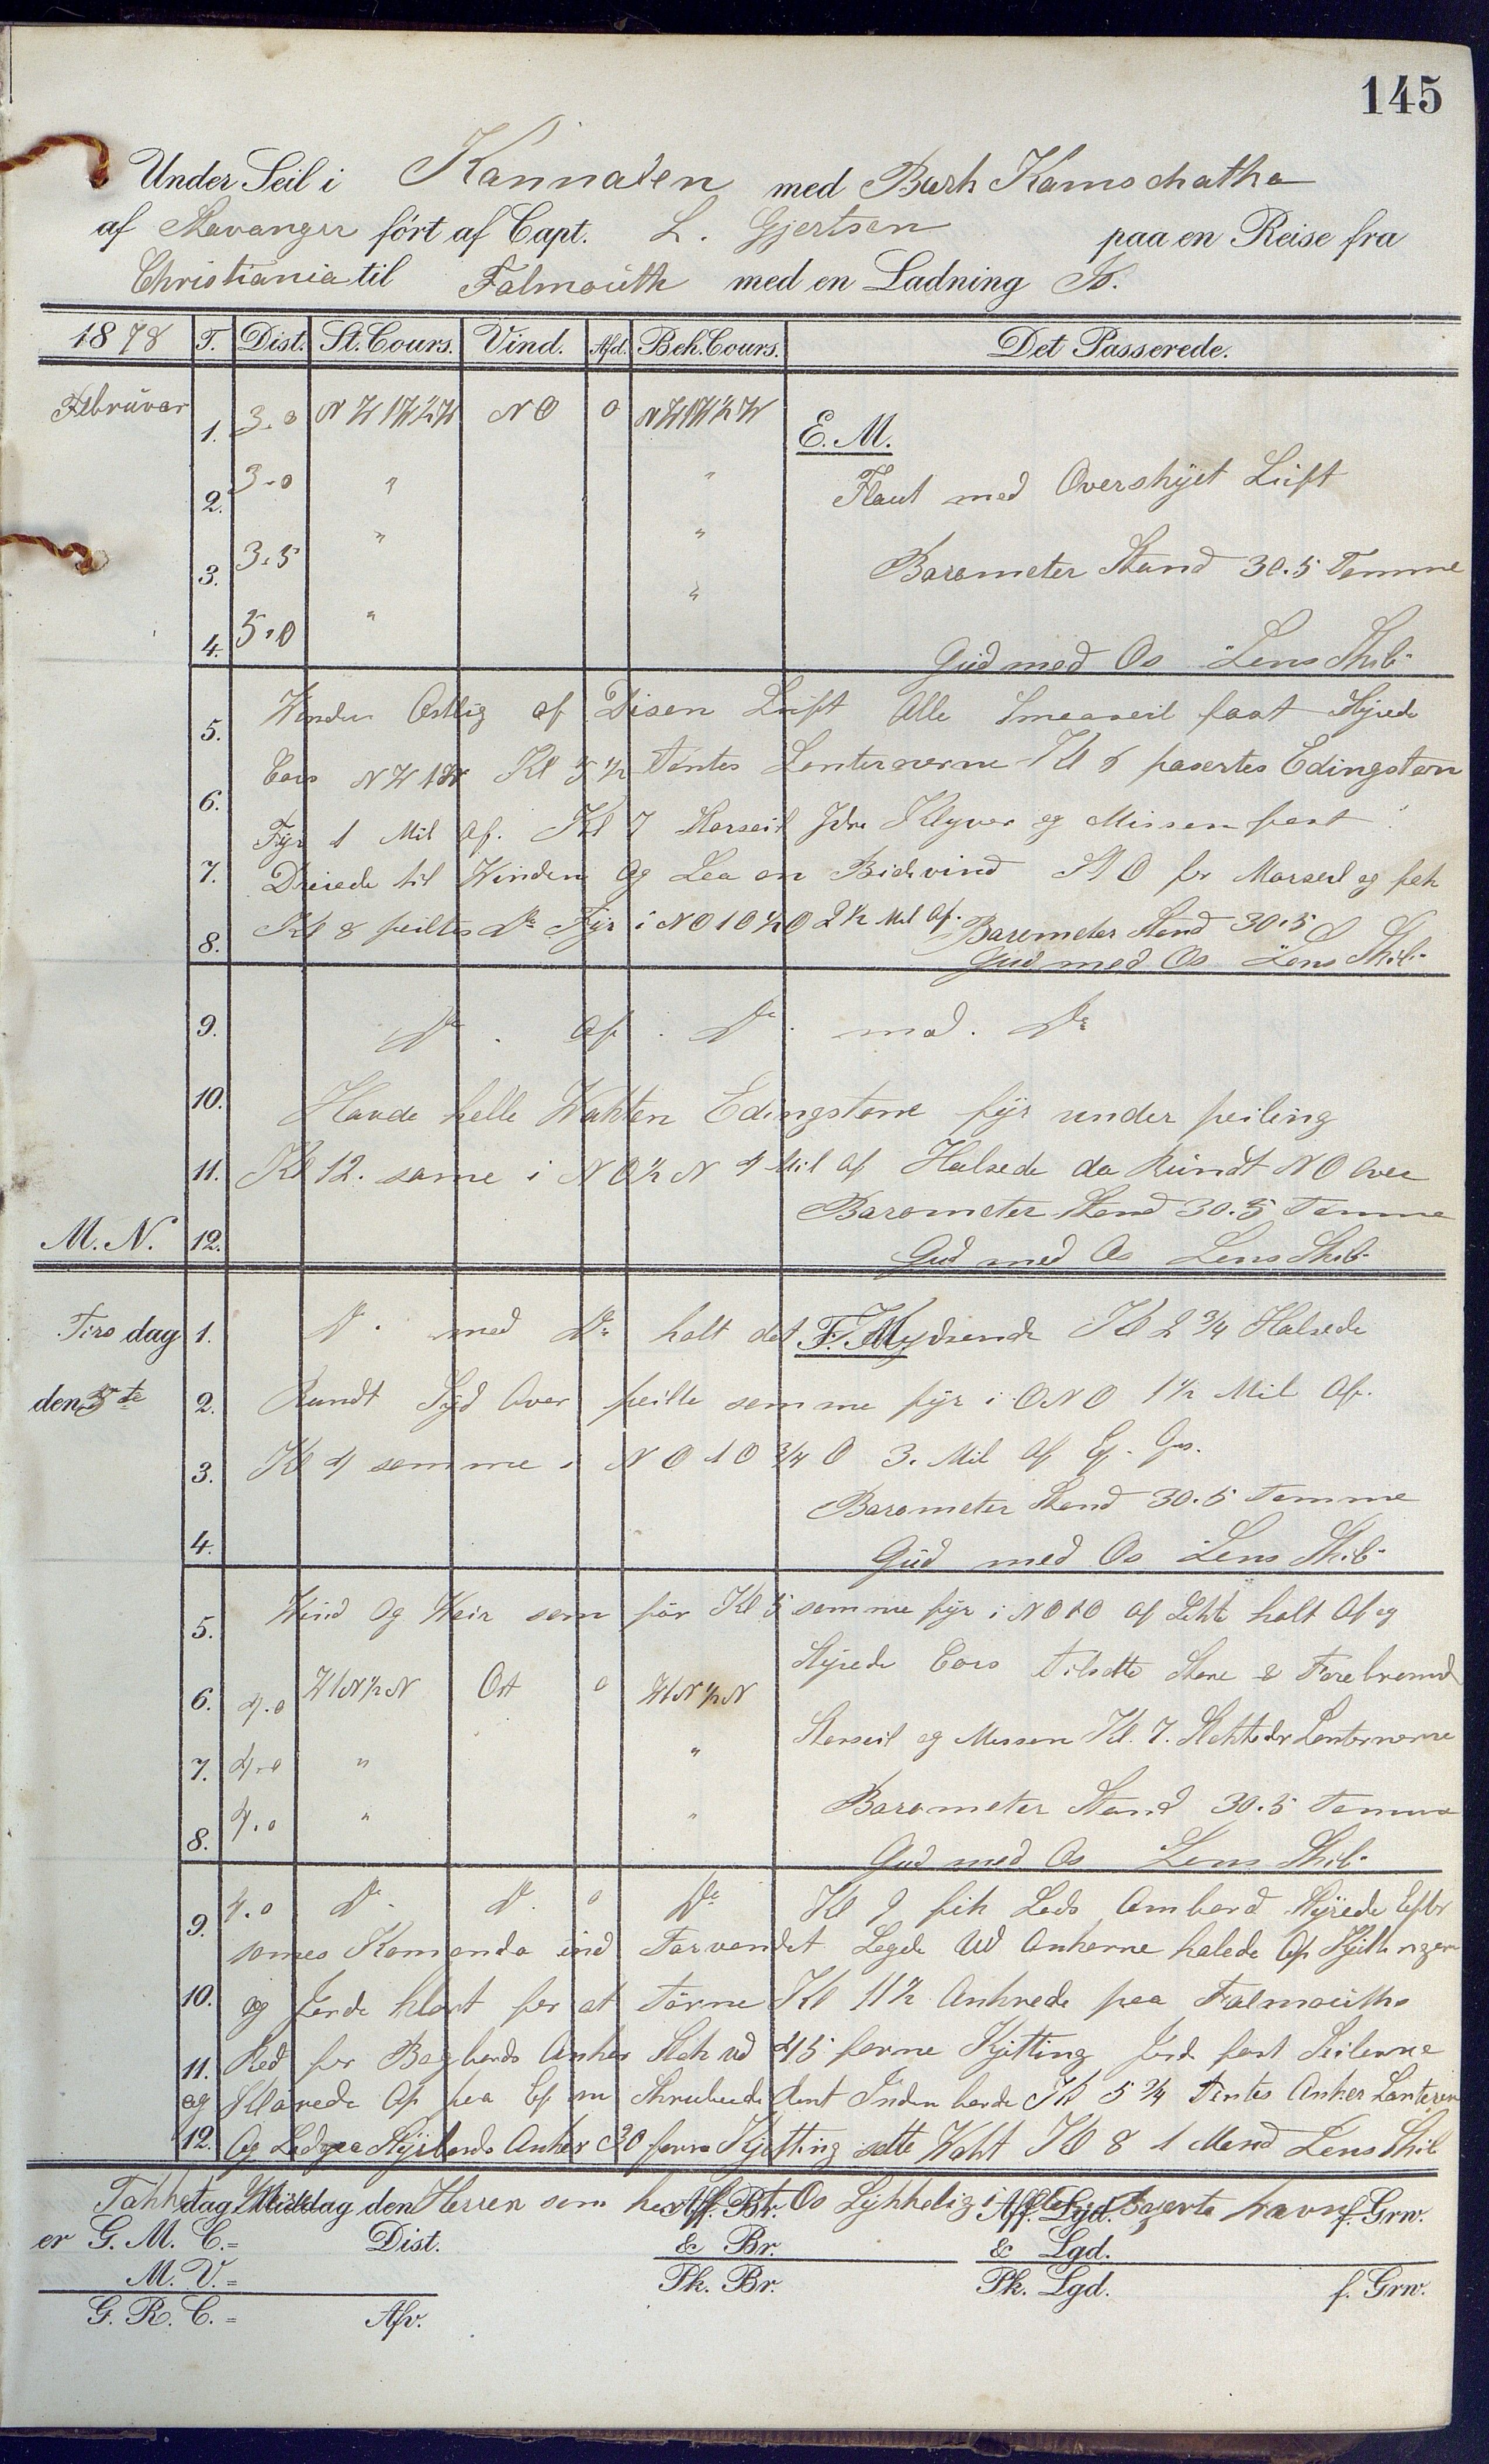 145
Under Seil i Kannalen med Bark Kamschatka
af Stavanger fört af Capt. L. Gjertsen paa en Reise fra
Christiania til Falmouth med en Ladning Is.
1878 T. Dist. St. Cours. Vind. Afd. Beh. Cours. Det Passerede.
Februar 1. 3.0 NW1W½W NO 0 NW1W½W E. M.
2. 3-0 " " Flaut med Overskyet Luft
3. 3.5 " " Barometer Stand 30.5 Tomme
4. 5.0 " "
Gud med Os Lens Skib
5. Vinden Ostlig af Disen Luft Alle Smaaseil fast Styrede
6. Cors NW1W Kl 5½ Tentes Lanternerne Kl 6 pasertes Edingston
Fyr 1 Mil af. Kl 7 Storseil Jdre Klyver og Missen fast
7. Dreiede til Vinden og Laa on Bidevind SO for Marseil og fok
8. Kl 8 peiltes Do Fyr i NO1O½O 2½ Mil af. Barometer Stand 30.5
Gud med Os Lens Skib
9. Do . af . Do . mad . Do
10. Havde helle Vakten Edingstone fyr under peiling
11. Kl 12. same i NO½N 4 Mil af Halsede da Rundt NO over
Barometer Stand 30.5 Tomme
M. N. 12. Gud med Os Lens Skib
Tirsdag 1. Do . med Do holt det F. M. Kl 2¾ Halsede
den 5te 2. Rundt Syd Over peilte somme fyr i ONO 1½ Mil af.
3. Kl 4 somme i NO1O¾O 3. Mil af
Barometer Stand 30.5 Tomme
4. Gud med Os Lens Skib
5. Vind og Veir som för Kl 5 somme fyr i NO1O af Lekte holt Af og
Styrede Cors Tilsatte Store & Forebramd
6. 4.0 W1N½N Ost 0 W1N½N
7. 4.0 " " Storseil og Messen Kl. 7. Slokte Lanternerne
8. 4.0 " " Barometer Stand 30.5 Tomme
Gud med Os Lens Skib
9. 4.0 Do . Do . 0 Do Kl 9 fik Lods Ombord Styrede Efter
somes Komando ind Farvandet Legde Ud Ankerne halede Op
10. og Jorde klart for at Törne Kl 11½ Ankrede paa Falmouths
11. Red for Bagbords Anker Stak ud 45 favne Kjetting Jord fast Seilerne
og Klarede Op paa Kl 5¾ Tentes Anker Lanteren
12. og Styrbords Anker 30 favne Kjetting satte Vakt Kl 8 1 Mand Lens Skib
Takket Være den Herren som har Os Lykkelig i havn
dag Middag den Aff. Br. Aff. Lgd. f. Grw.
er G. M. C. = Dist. & Br. & Lgd.
M. V. = Pk. Br. Pk. Lgd. f. Grw.
G. R. C. = Afv.